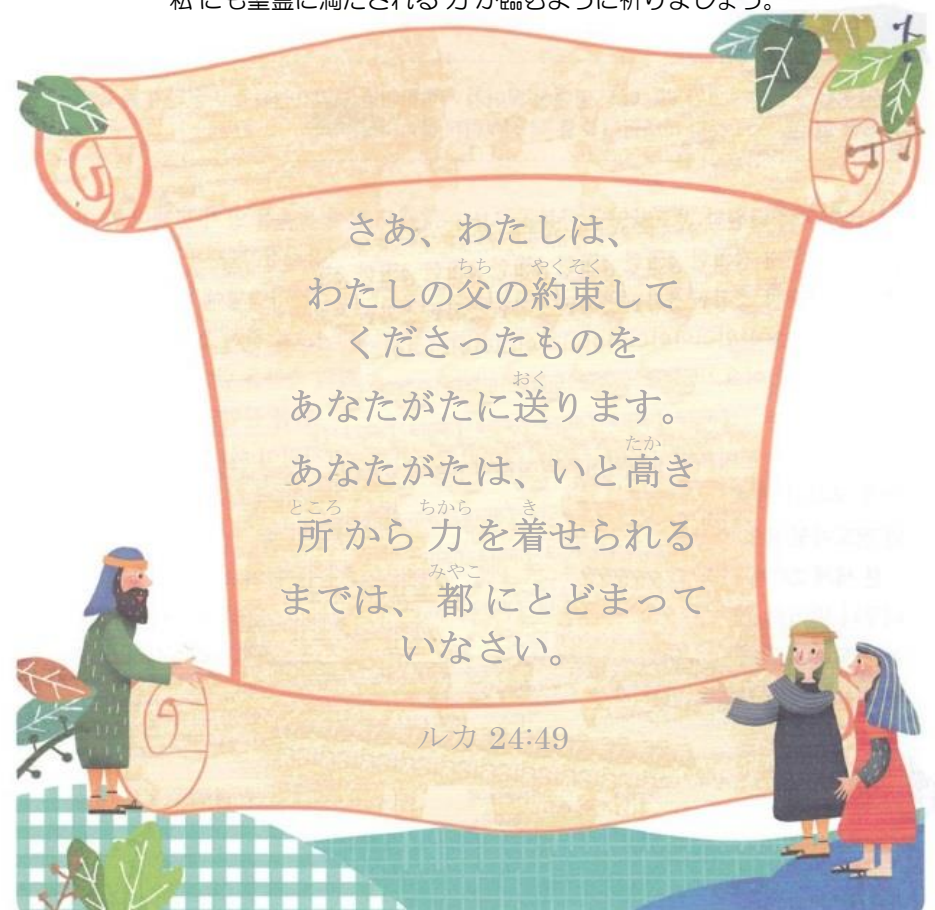 私にも聖霊に満たされる力が臨むように祈りましょう。
さあ、わたしは、
ちち やくそく
わたしの父の約束して
くださったものを
おく
あなたがたに送ります。
たか
あなたがたは、いと高き
ところ ちから き
所から力を着せられる
みやこ
までは、都にとどまって
いなさい。
ルカ 24:49